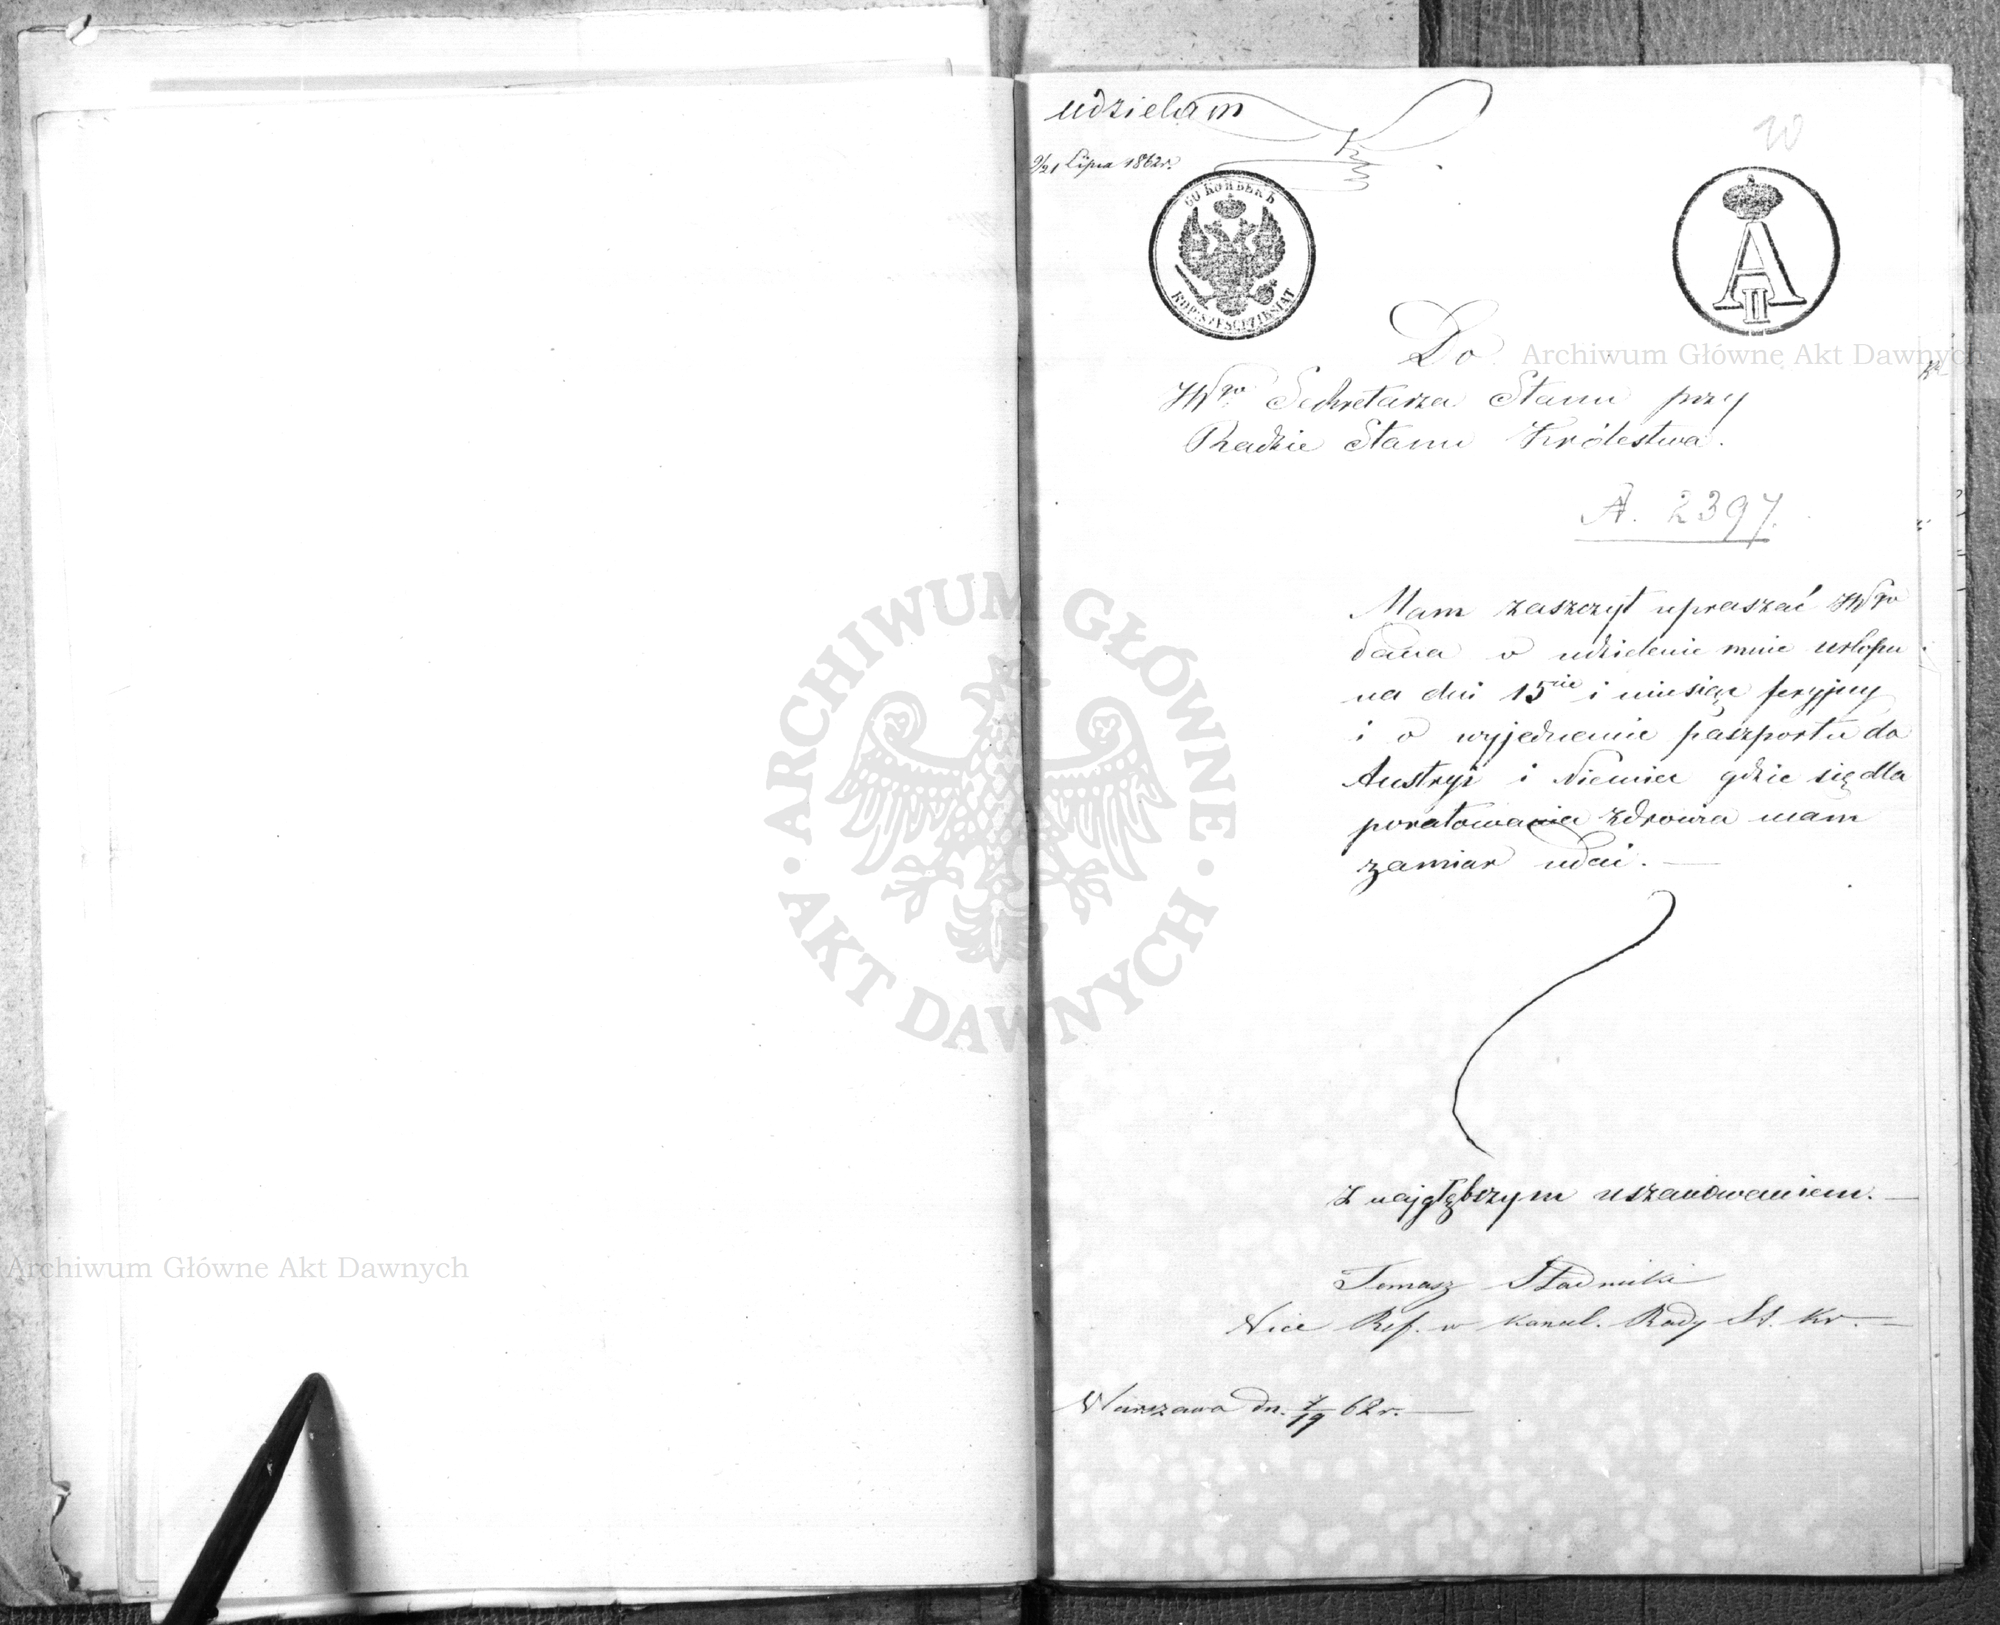 udzielam
9/21 Lipca 1862 r.
10
60 КОПѢЕКЪ
KOP: SZEŚĆDZIESIĄT
A II
Do
JWgo Sekretarza Stanu przy
Radzie Stanu Królestwa.
A. 2397.
Mam zaszczyt upraszać JWgo
Pana o udzielenie mnie urlopu
na dni 15cie i miesiąc feryjny
i o wyjednanie paszportu do
Austryi i Niemiec gdzie się dla
poratowania zdrowia mam
zamiar udać. —
Z najgłębszym uszanowaniem. —
Tomasz Stadnicki
Vice Ref. w Kancel. Rady St. Kr. —
Warszawa dn. 7/19 62 r. —
Archiwum Główne Akt Dawnych
ARCHIWUM GŁÓWNE
AKT DAWNYCH
Archiwum Główne Akt Dawnych